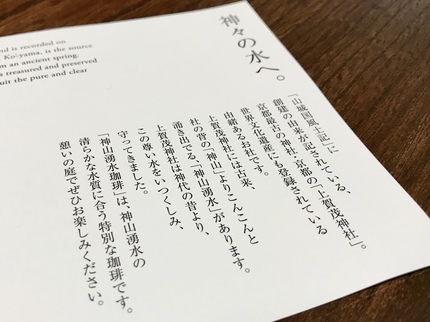 神々の水へ。
『山城国風土記』に
創建の由来が記されている、
京都最古の神社・京都の「上賀茂神社」。
世界文化遺産にも登録されている
由緒あるお社です。
上賀茂神社には古来、
社の背の「神山」よりこんこんと
涌き出でる、「神山湧水」があります。
上賀茂神社は神代の昔より、
この尊い水をいつくしみ、
守ってきました。
「神山湧水珈琲」は、神山湧水の
清らかな水質に合う特別な珈琲です。
憩いの庭でぜひお楽しみください。
nd is recorded on
Ko-yama, is the source
m an ancient spring.
s treasured and preserved
uit the pure and clear